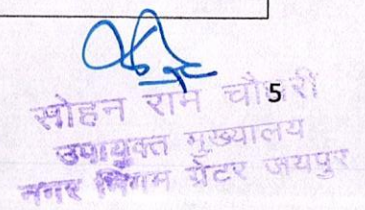 सोहन राम चौधरी
5
उपायुक्त मुख्यालय
नगर निगम ग्रेटर जयपुर